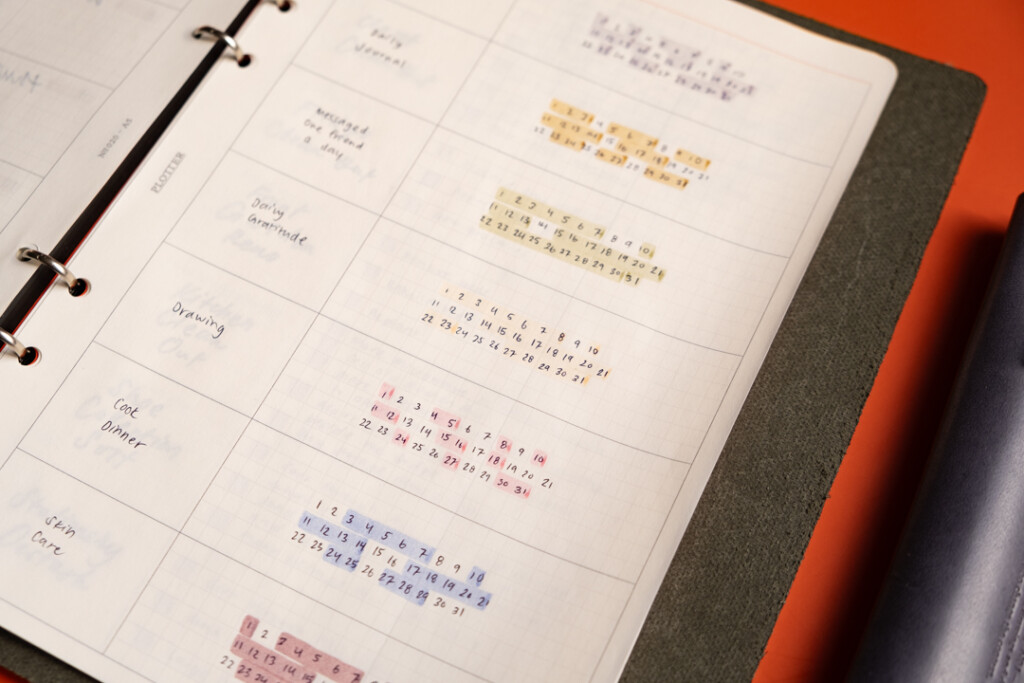 N°820 - A5
PLOTTER
Daily
Journal
Messaged
one friend
a day
1 2 3 4 5 6 7 8 9 10
11 12 13 14 15 16 17 18 19 20 21
22 23 24 25 26 27 28 29 30 31
Daily
Gratitude
1 2 3 4 5 6 7 8 9 10
11 12 13 14 15 16 17 18 19 20 21
22 23 24 25 26 27 28 29 30 31
Drawing
1 2 3 4 5 6 7 8 9 10
11 12 13 14 15 16 17 18 19 20 21
22 23 24 25 26 27 28 29 30 31
Cook
Dinner
1 2 3 4 5 6 7 8 9 10
11 12 13 14 15 16 17 18 19 20 21
22 23 24 25 26 27 28 29 30 31
Skin
Care
1 2 3 4 5 6 7 8 9 10
11 12 13 14 15 16 17 18 19 20 21
22 23 24 25 26 27 28 29 30 31
1 2 3 4 5 6 7
11 12 13 14 15
22 23 24